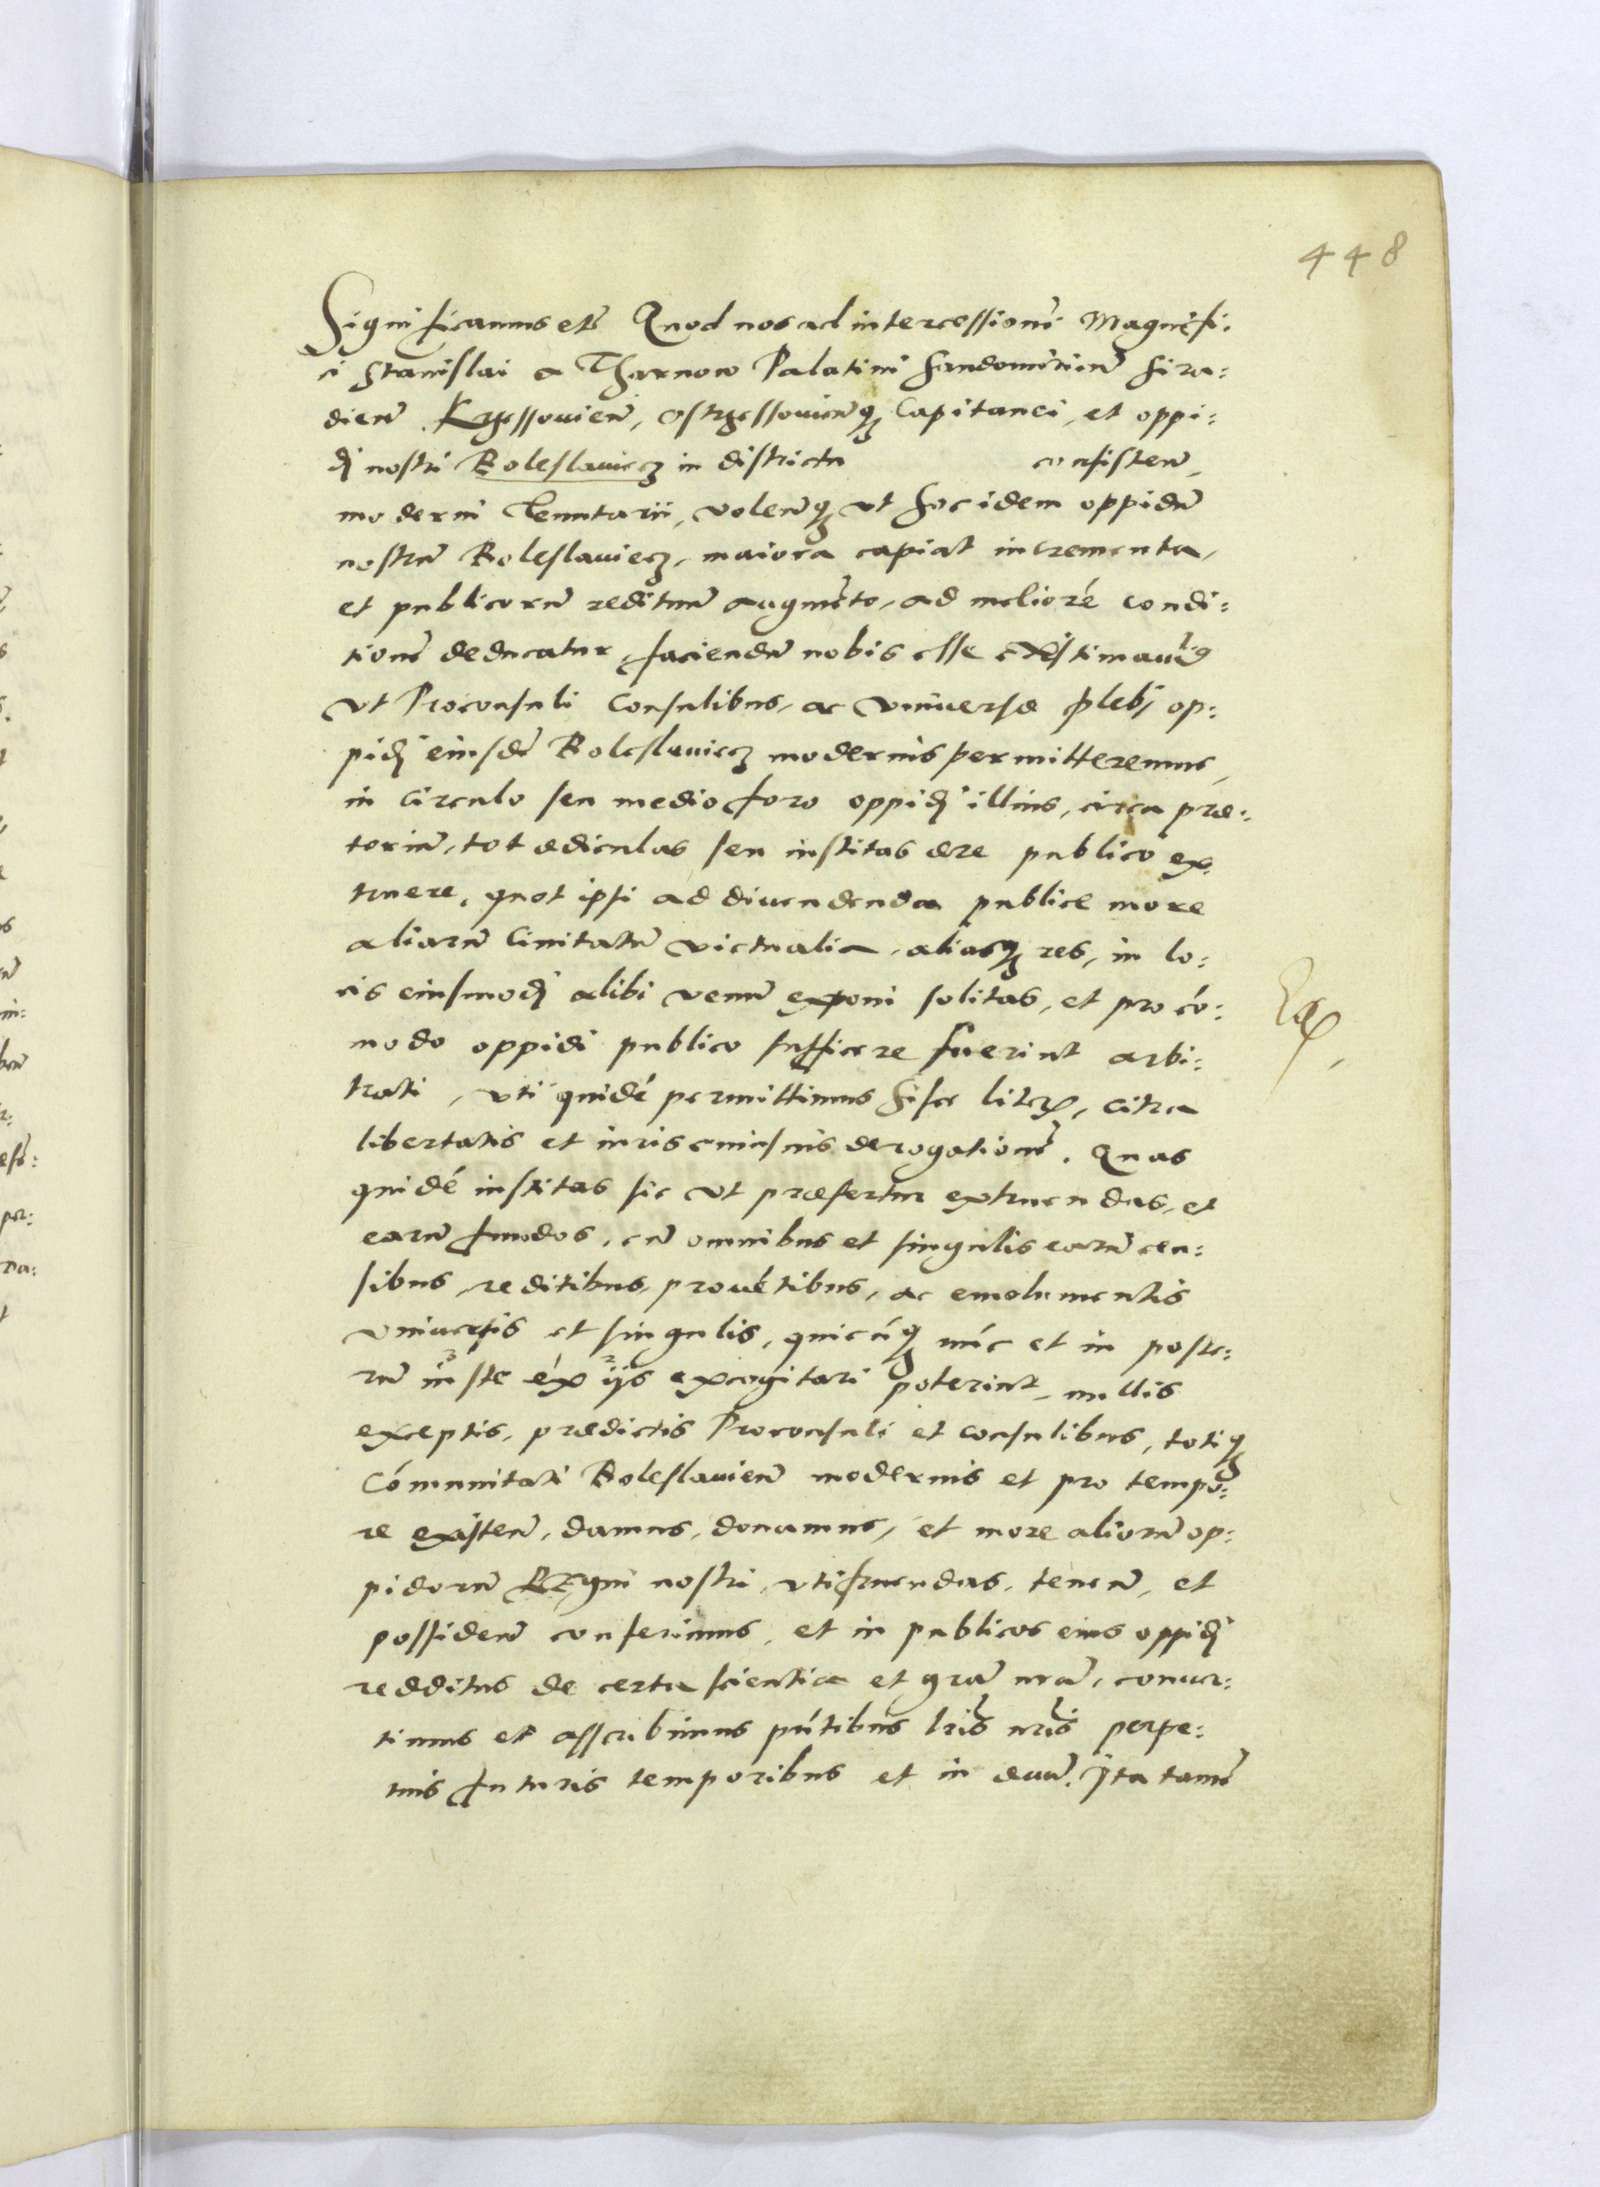 448
Significamus etc̃ Quod nos ad intercessionẽ Magnifi:
ci Stanislai a Tharnow Palatini Sandomirieñ Sira:
dieñ Krzessovieñ, Ostrzessovieñq₃ Capitanei, et oppi:
dj nostri Boleslauiecz in districtu consisteñ,
moderni Tenutarii, voleñq₃ ut hoc idem oppidũ
nostrũ Boleslauiecz, maiora capiat incrementa,
et publicorũ redituũ augmẽto, ad melioré condi:
tionẽ deducatur, faciendũ nobis esse existimauim9
ut Proconsuli Consulibus, ac vniuersæ plebj op:
pidj eiusdẽ Boleslauiecz modernis permitteremus,
in circulo seu medio foro oppidj illius, circa præ:
toriũ, tot ædiculas seu institas ære publico ex
truere, quot ipsi ad diuendenda publice more
aliarũ Ciuitatũ victualia, aliasq₃ res, in lo:
cis eiusmodj alibi venũ exponi solitas, et pro có:
modo oppidi publico sufficere fuerint arbi:
Ex
trati, uti quidé permittimus hisce literis, citra
libertatis et iuris cuiusuis derogationẽ. Quas
quidé institas sic ut præfertur extruendas, et
earũ fundos, cũ omnibus et singulis earũ cen:
sibus, reditibus, prouẽtibus, ac emolumentis
vniuersis et singulis, quæcũq₃ nũc et in poste:
rũ iuste ex ijs excogitari poterint, nullis
exceptis, prædictis Proconsuli et consulibus, totiq₃
Cómunitati Boleslauieñ modernis et pro tempo:
re existeñ, damus, donamus, et more aliorũ op:
pidorũ Regni nostri, utifruendas, teneñ, et
possideñ conferimus, et in publicos eius oppidj
redditus de certa scientia et gr̃a nr̃a, conuer:
timus et asscribimus pñtibus lris nris perpe:
tuis futuris temporibus et in æuũ. Ita tamẽ